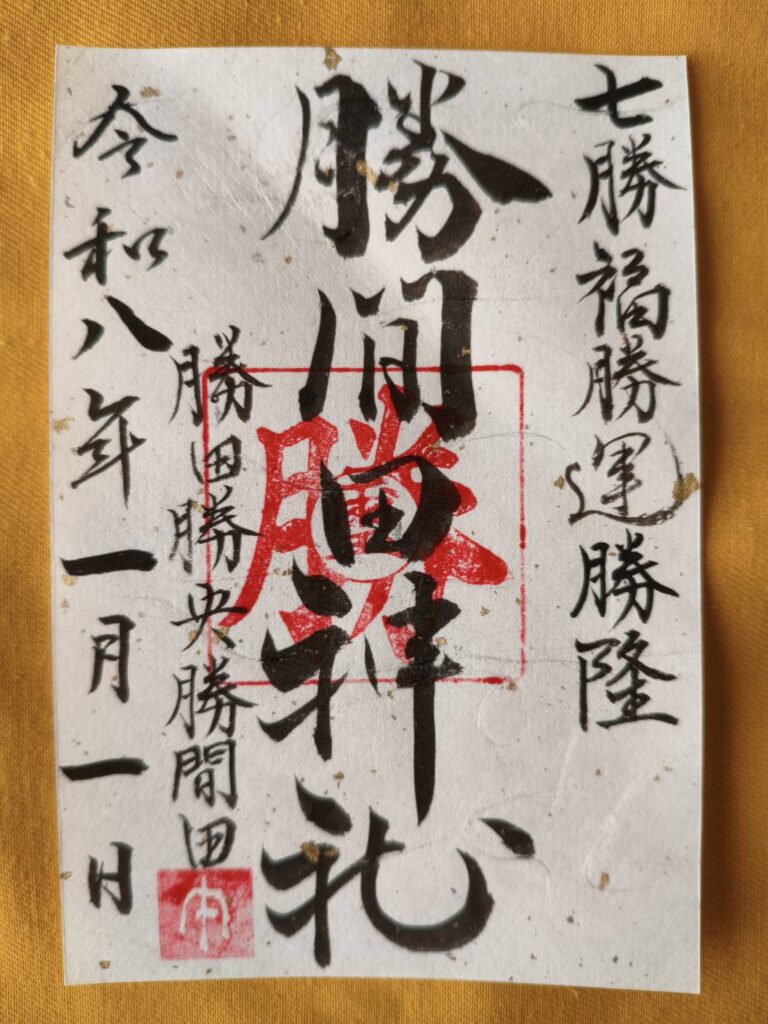 七勝福勝運勝隆
勝間田神社
勝
勝田勝央勝間田
令和八年一月一日